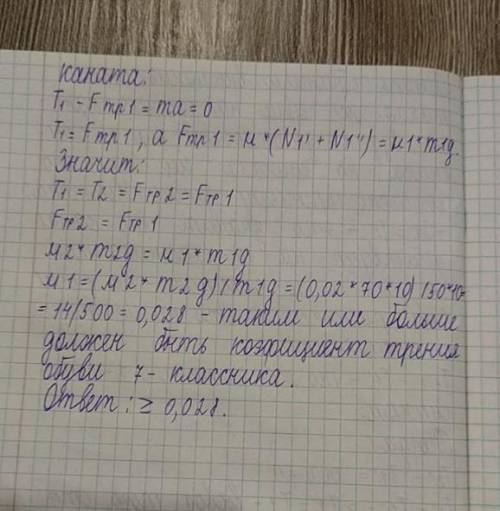 каната:
T1 - Fтр1 = ma = 0
T1 = Fтр1, а Fтр1 = м*(N1' + N1'') = м1*m1g.
Значит:
T1 = T2 = Fтр2 = Fтр1
Fтр2 = Fтр1
м2*m2g = м1*m1g
м1 = (м2*m2g)/m1g = (0,02*70*10)/50*10=
= 14/500 = 0,028 - таким или больше
должен быть коэфициент трения
обуви 7-классника.
Ответ: ≥ 0,028.